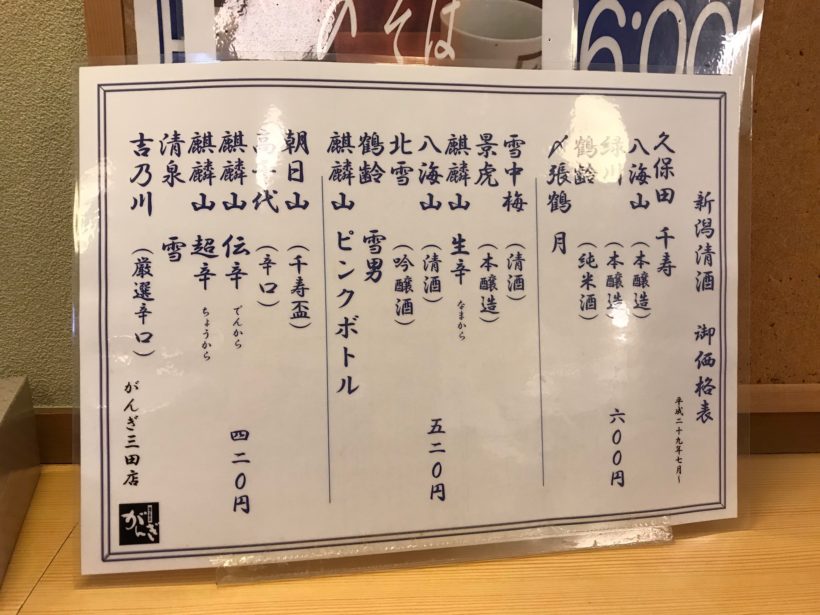 のそば
6:00
新潟清酒 御価格表
平成二十九年七月～
久保田 千寿
八海山（本醸造）
緑川（本醸造）
鶴齢（純米酒）
〆張鶴 月
六〇〇円
雪中梅（清酒）
景虎（本醸造）
麒麟山 生辛 なまから
八海山（清酒）
北雪（吟醸酒）
鶴齢 雪男
麒麟山 ピンクボトル
五二〇円
朝日山（千寿盃）
高千代（辛口）
麒麟山 伝辛 でんから
麒麟山 超辛 ちょうから
清泉 雪
吉乃川（厳選辛口）
四二〇円
がんぎ三田店
がんぎ